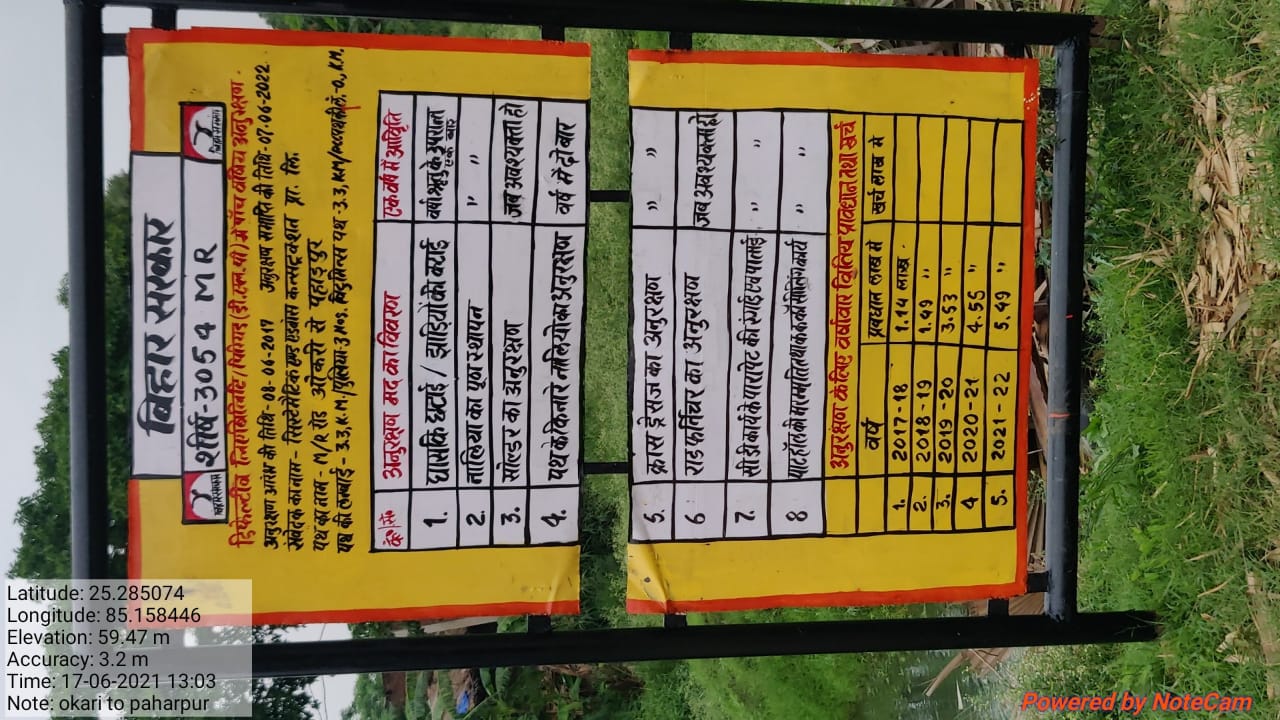 बिहार सरकार
शीर्ष-3054 MR
बिहार सरकार
बिहार सरकार
डिफेल्टीव लियबिलिटि/पिरियड (डी.एल.पी) में पाँच वर्षिय अनुरक्षण.
अनुरक्षण आरंभ की तिथि- 08-06-2017 अनुरक्षण समाप्ति की तिथि- 07-06-2022
संवेदक का नाम - सिस्टेमेटिक एण्ड एडभांस कन्सट्रक्शन प्रा. लि.
पथ का नाम - M/R रोड ओकरी से पहाड़पुर
पथ की लम्बाई - 3.3, K.M. पुलिया-3 Nos. बिटुमिन्स पथ -3.3, KM/
क्र०/सं० अनुरक्षण मद का विवरण एक वर्ष में आवृति
1. घासकि छटाई / झाड़ियों की कटाई वर्षा ऋतु के उपरान्त एक बार
2. नालिया का पून स्थापन " "
3. सोल्डर का अनुरक्षण जब अवश्यक्ता हो
4. पथ के किनारे नालियो का अनुरक्षण वर्ष में दो बार
5. क्रास ड्रेसेज का अनुरक्षण " "
6 रोड फर्निचर का अनुरक्षण जब अवश्यक्ता हो
7. सी डी कार्य के पारापेट की रंगाई एवं पोताई " "
8 पाट हॉल की मरम्मति तथा क्रैक सीलिंग कार्य " "
अनुरक्षण के लिए वर्षवार वितिय प्रावधान तथा खर्च
वर्ष प्रवधान लाख में खर्च लाख में
1. 2017-18 1.14 लाख.
2. 2018-19 1.49 "
3. 2019-20 3.53 "
4 2020-21 4.55 "
5. 2021-22 5.49 "
Latitude: 25.285074
Longitude: 85.158446
Elevation: 59.47 m
Accuracy: 3.2 m
Time: 17-06-2021 13:03
Note: okari to paharpur
Powered by NoteCam